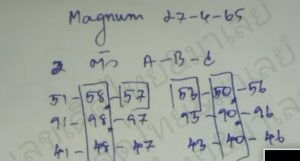 Magnum 27-4-65
2 ตัว A-B-C
51-58-57 53-50-56
91-98-97 93-90-96
41-48-47 43-40-46